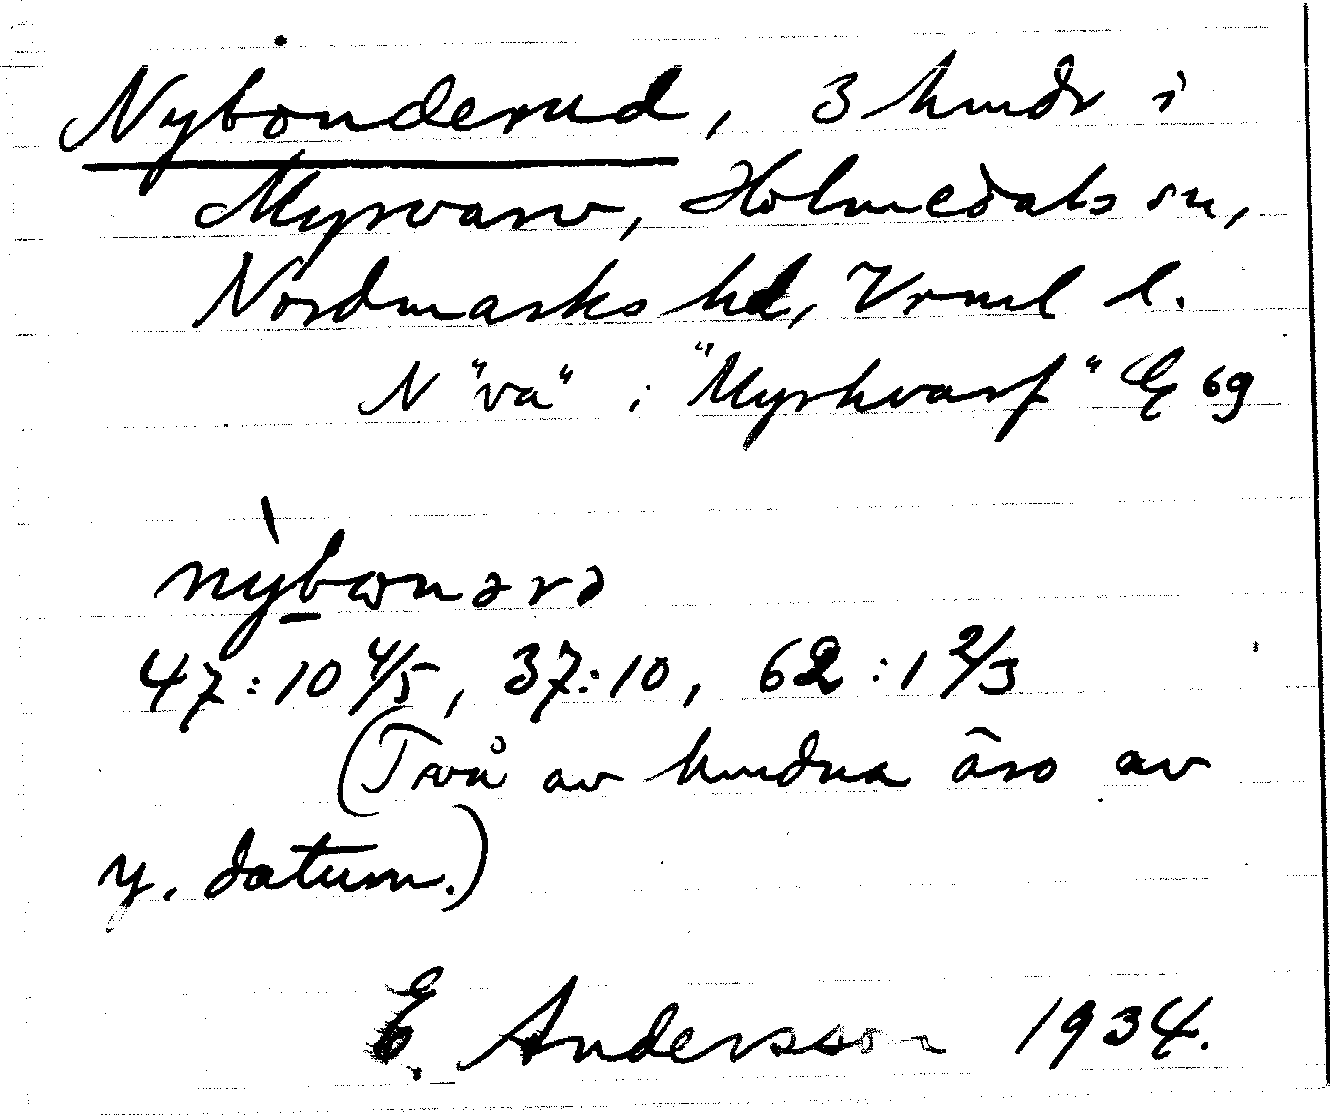 Nybonderud, 3 hmdr i
Myrvarv, Holmedals sn,
Nordmarks hd, Vrml l.
N "va" i "Myrhvarf" G 69
nỳbωnərə
47:10 4/5, 37:10, 62:1 2/3
(Två av hmdna äro av
y. datum.)
E. Andersson 1934.